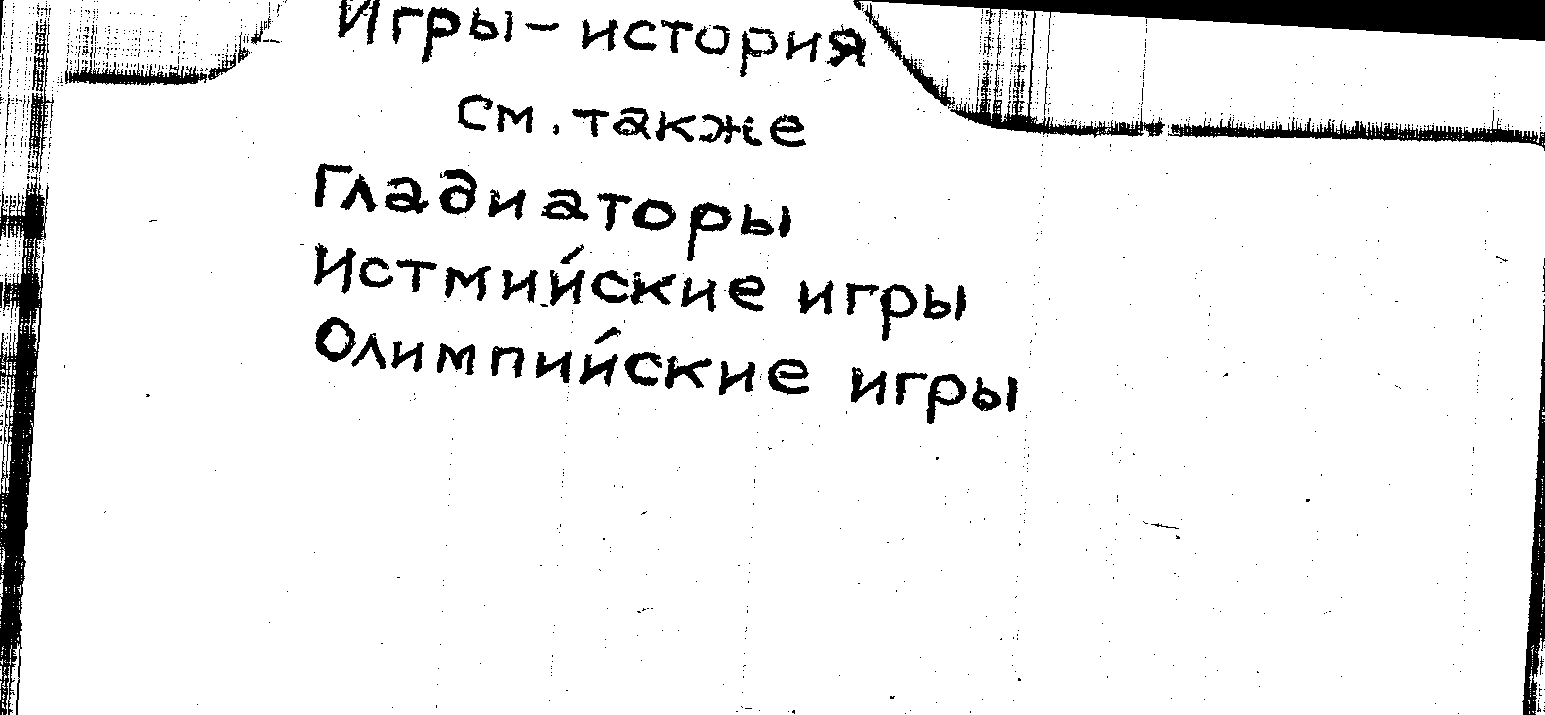 Игры - история
см. также
Гладиаторы
Истмийские игры
Олимпийские игры